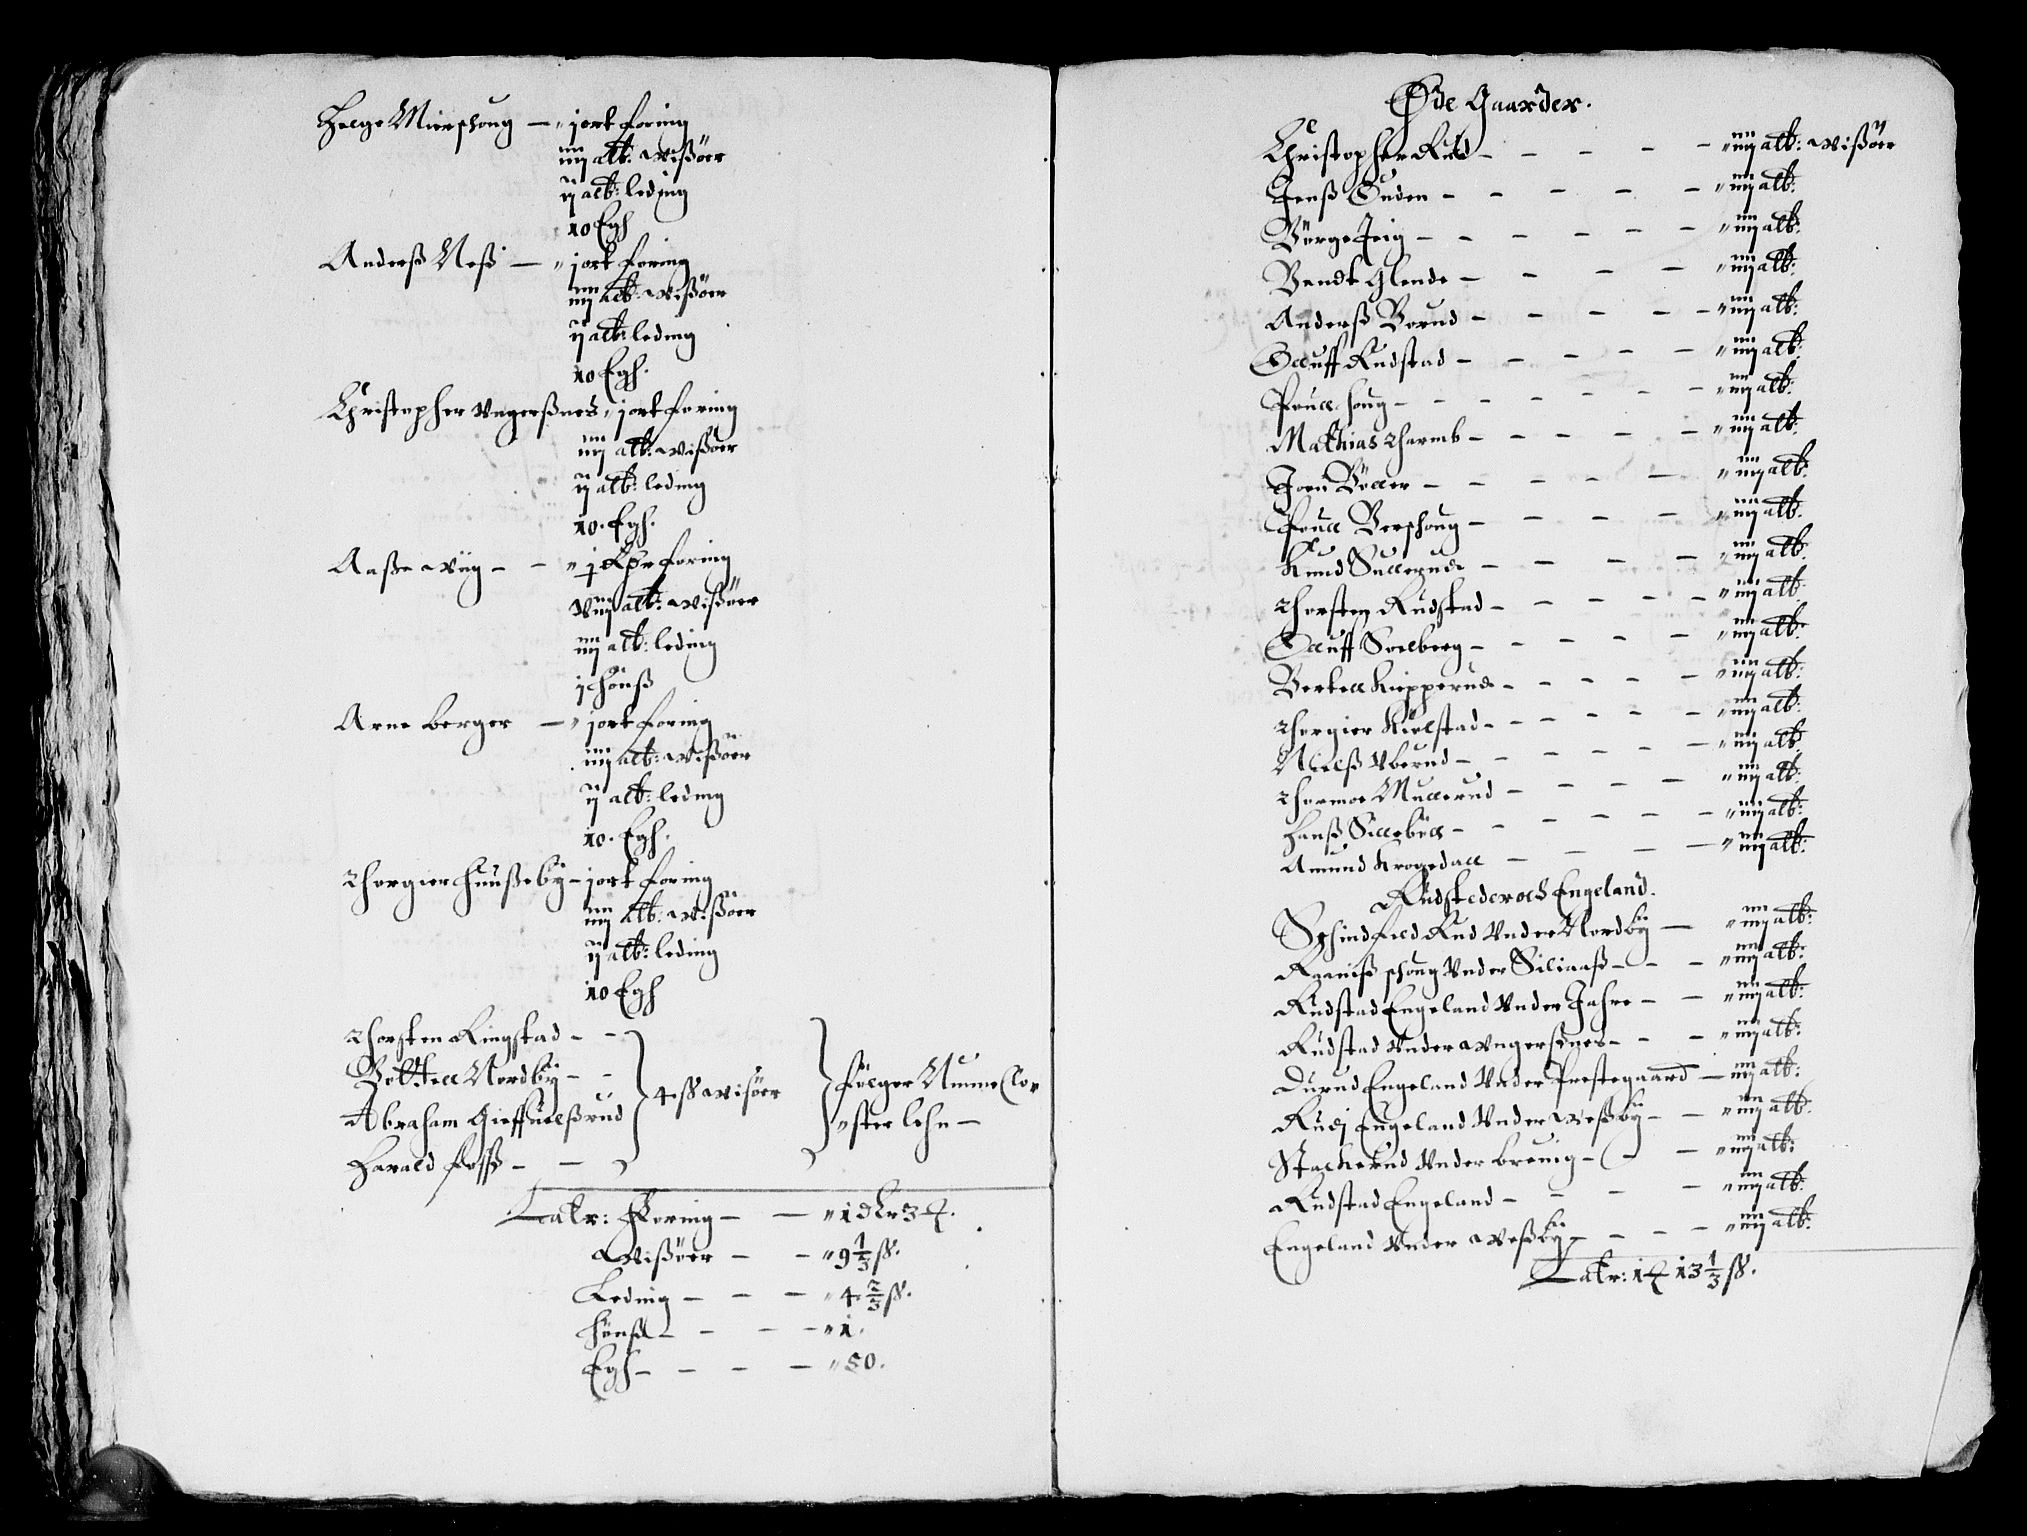 Helge Mierschoug — „ j ort foring
iiij alb: wissöer
ij alb: leding
10 Egh
Anderß Neß — „ j ort foring
iiij alb: wissöer
ij alb: leding
10 Egh.
Christopher Ungerßnes „ j ort foring
iiij alb: wissöer
ij alb: leding
10. Egh.
Aaße wiig — — „ j foring
viij alb: wissöer
iiij alb: leding
j hönß
Arne berger — „ j ort foring
iiij alb: wissöer
ij alb: leding
10. Egh.
Thorgier Huußeby — j ort foring
iiij alb: wissöer
ij alb: leding
10 Egh
Thorsten Ringstad — —
Bottell Nordby — —
Abraham Gieffuelßrud
Harald foss — —
4 ß wisöer
fölger Nunne Clo„
„ster lehn —
Latr: Foring — — „ 1 dlr 3
Wißöer — — „ 9 1/3 ß.
Leding — — — „ 4 2/3 ß.
Hönß — — — „ 1.
Egh — — — — „ 50.
Øde Gaarder.
Christopher Rud — — — — „ iiij alb: wissöer
Jenß Guden — — — — — „ iiij alb:
Börge Jeig — — — — — „ iiij alb:
Bendt Glende — — — — „ iiij alb:
Anderß Borud — — — — „ iiij alb:
Oluff Rudstad — — — — „ iiij alb:
Poull houg — — — — — „ iiij alb:
Mathias Tharmb — — — — „ iiij alb:
Joen Böller — — — — — „ iiij alb:
Poull Berschoug — — — — „ iiij alb:
Knud Sullerud — — — — „ iiij alb:
Thorsten Rudstad — — — — „ iiij alb:
Oluff Solberg — — — — „ iiij alb:
Bertell Kiepperud — — — — „ iiij alb:
Thorgier Kielstad — — — — „ iiij alb:
Nielß Uberud — — — — „ iiij alb:
Thormoe Mullerud — — — — „ iiij alb:
Hanß Silleböll — — — — „ iiij alb:
Amund Krogedall — — — — „ iiij alb:
Rudsteder och Engeland.
Schindfeld Rud Under Nordby — „ iiij alb:
schoug Under Siliaaß — — „ iiij alb:
Rudstad Engeland Under Jahre — — „ iiij alb:
Rudstad Under Ungerßnes — — „ iiij alb:
Durud Engeland Under Prestegaard — iiij alb:
Rudj Engeland Under Weßby — — „ iiij alb:
Stackerud Under breuig — — „ iiij alb:
Rudstad Engeland — — — — „ iiij alb:
Engeland Under Weßby — — — „ iiij alb:
Latr: 1 13 1/3 ß.